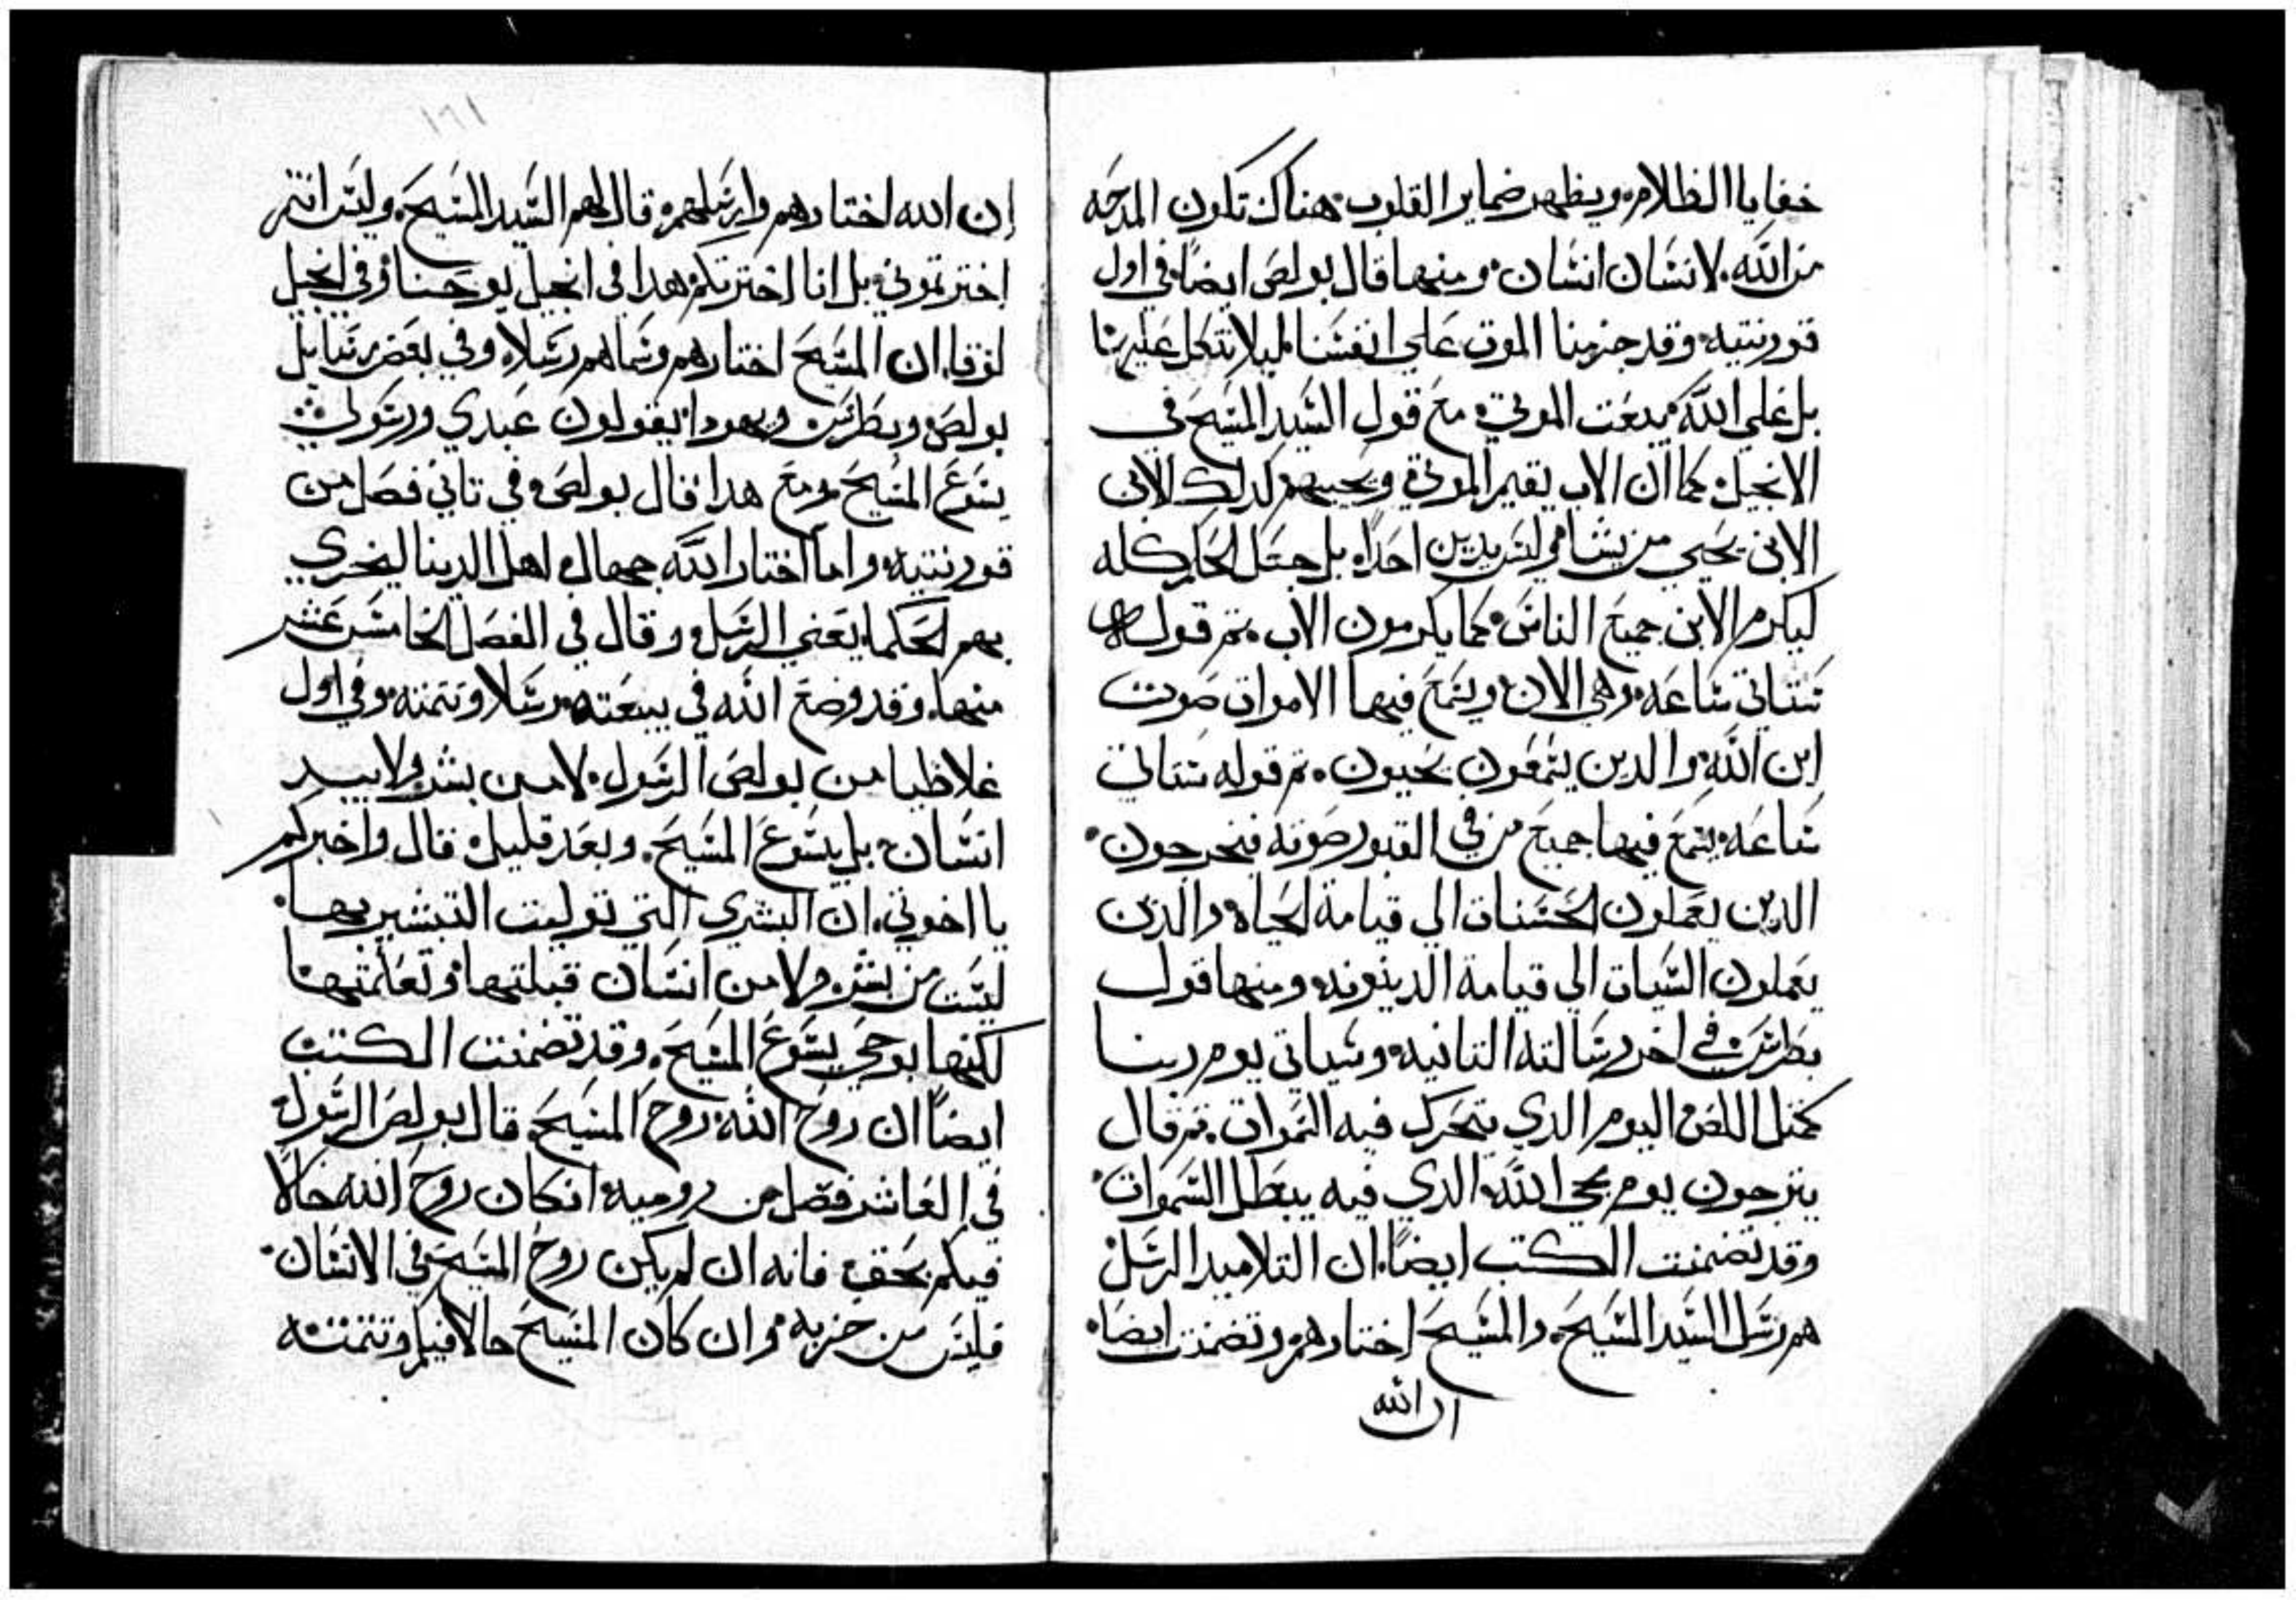 خفايا الظلام ويظهر ضماير القلوب هناك تكون المدحه
من الله لانسان انسان ومنها قال بولص ايضًا في اول
قورنتيه وقد جزمنا الموت على انفسنا ليلا نتكل عليها
بل على الله يبعت الموتي مع قول السيد المسيح في
الانجيل كما ان الاب يقيم الموتي ويحييهم كدلك الابن
الابن يحيي من يشا وليس يدين احدًا بل جعل الحكم كله
ليكرم الابن جميع الناس كما يكرمون الاب تم قوله
ستاتي ساعه وهي الان ويسمع فيها الاموات صوت
ابن الله والدين يسمعون يحيون تم قوله ستاتي
ساعه يسمع فيها جميع من في القبور صوته فيخرجون
الدين يعملون الحسنات الي قيامة الحياه والدين
يعملون السيات الي قيامة الدينونه ومنها قول
بطرس في اخر رسالته التانيه وسياتي يوم ربنا
كمتل اللص اليوم الدي تتحرك فيه السموات تم قال
يترجون يوم مجي الله الدي فيه يبطل السموات
وقد تضمنت الكتب ايضًا ان التلاميد الرسل
هم رسل السيد المسيح والمسيح اختارهم وتضمنت ايضا
ان الله
١٦١
إن الله اختارهم وارسلهم قال لهم السيد المسيح وليس انتم
اخترتموني بل انا اخترتكم هدا في انجيل يوحنا وفي انجيل
لوقا ان المسيح اختارهم وسماهم رسلا وفي بعض رسايل
بولص وبطرس ويهودا يقولون عبدي ورسولي
يسوع المسيح ومع هدا قال بولص في تاني فصل من
قورنتيه وانما اختار الله جهال اهل الدينا ليخزي
بهم الحكما يعني الرسل وقال في الفصل الخامس عشر
منها وقد وضع الله في بيعته رسلا وتتمته وفي اول
غلاظيا من بولص الرسول لا من بشر ولا بيد
انسان بل يسوع المسيح وبعد قليل قال واخبركم
يا اخوتي ان البشري التي توليت التبشير بها
ليست من بشر ولا من انسان قبلتها وتعلمتها
لكنها بوحي يسوع المسيح وقد تضمنت الكتب
ايضًا ان روح الله روح المسيح قال بولص الرسول
في العاشر فصل من روميه انكان روح الله حالاً
فيكم بحق فانه ان لم يكن روح المسيح في الانسان
فليس من حزبه وان كان المسيح حالا فيكم وتتمته